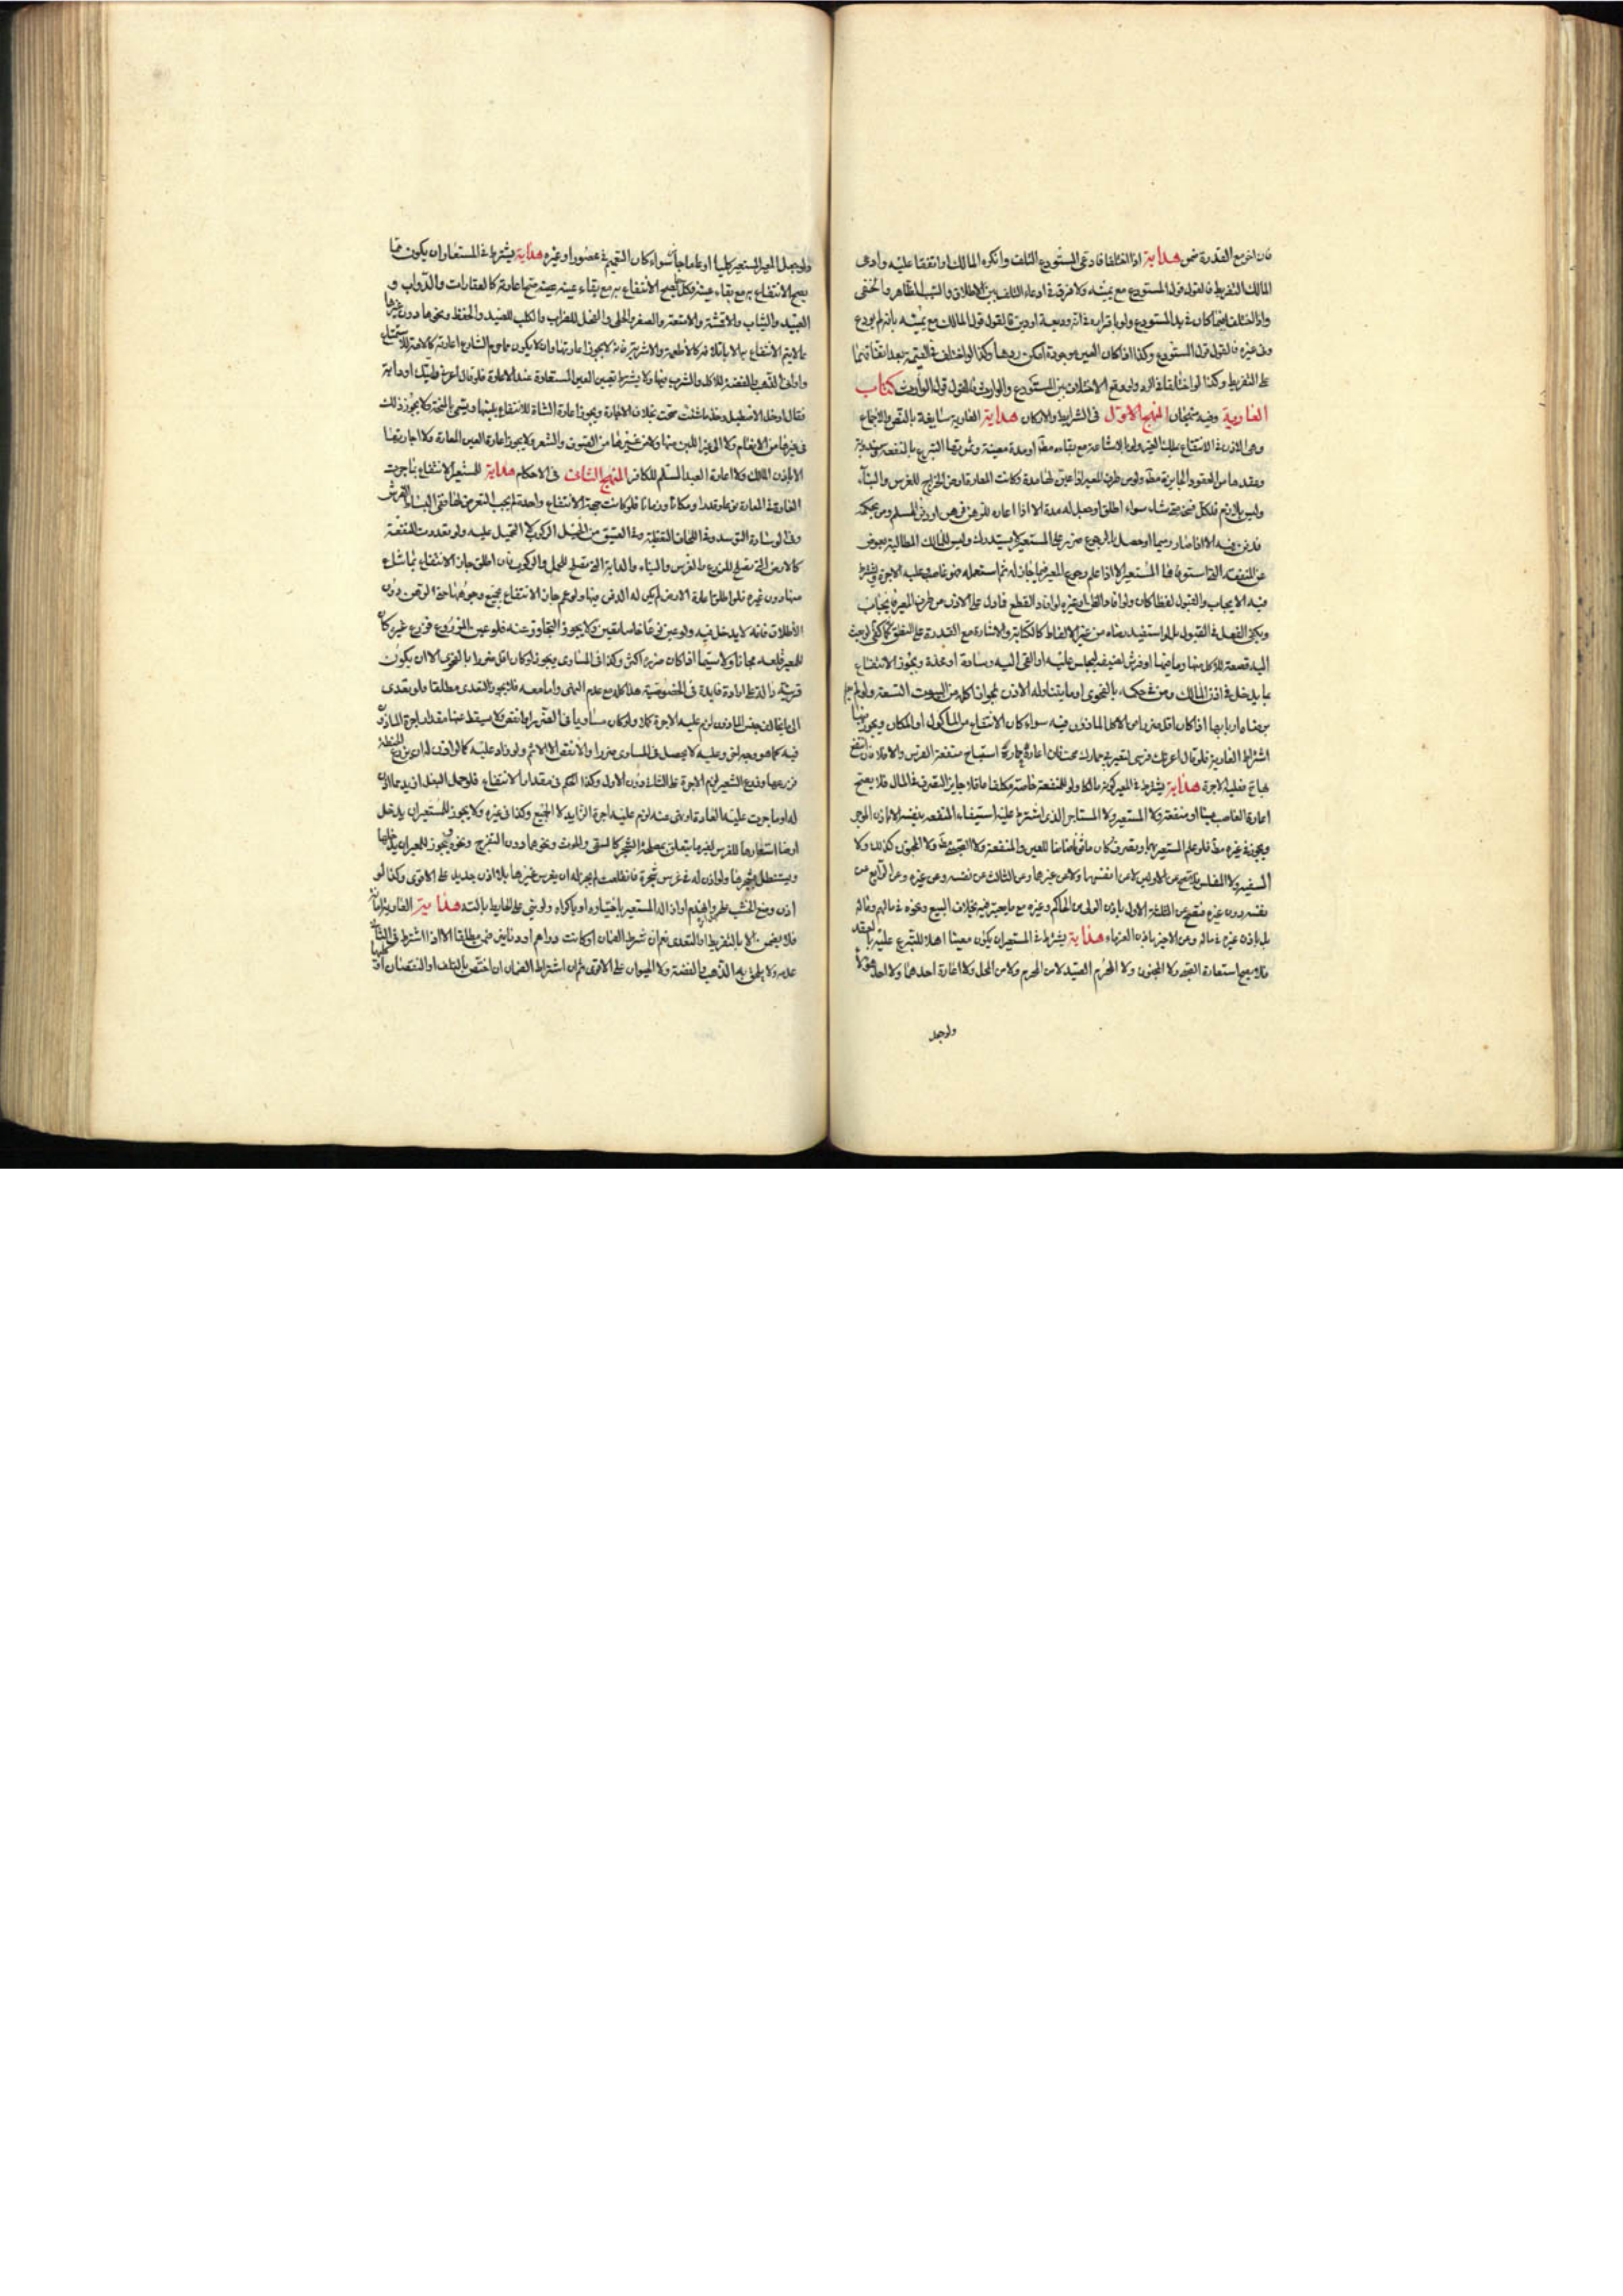 فان اخر مع القدرة ضمن هداية اذا اختلفا فادعى المستودع التلف وانكره المالك او اتفقا عليه وادعى
المالك التفريط فالقول قول المستودع مع يمينه ولا فرق في ادعاء التلف بين الاطلاق والسبب الظاهر والخفى
واذا اختلف فيما كان في يد المستودع ولو باقراره في انه وديعة او دين فالقول قول المالك مع يمينه بانه لم يودع
وفى غيره فالقول قول المستودع وكذا اذا كان العين موجودة امكن ردها وكذا لو اختلف في القيمة بعد اتفاقهما
على التفريط وكذا لو اختلفا في الرد ولو وقع الاختلاف بين المستودع والوارث فالقول قول الوارث كتاب
العارية وفيه منهجان المنهج الاول فى الشرايط والاركان هداية العارية سايغة بالنص والاجماع
وهى الاذن في الانتفاع بملك الغير مع بقاءه مط او مدة معينة وثمرتها التبرع بالمنفعة
وعقدها من العقود الجايزة مط ولو من طرف المعير اذا عين لها مدة وكانت المعارة ارض الخراج للغرس والبناء
وليس بلازم فلكل فسخه متى شاء سواء اطلق او جعل له مدة الا اذا اعاره للرهن فرهن او دفن المسلم ومن بحكمه
فدفن فيه الا اذا صار رميما او حصل بالرجوع ضرر على المستعير لا يستدرك وليس للمالك المطالبة بعوض
عن المنفعة التى استوفاها المستعير الا اذا علم رجوع المعير فيما جاز له ثم استعمله فهو غاصب عليه الاجرة
فيه الايجاب والقبول لفظا كان
ويكفى الفعل في القبول بل لو استفيد رضاه من غير الالفاظ كالكتابة والاشارة مع القدرة على النطق كفى
اليه قصعة للاكل منها او فرش لضيف ليجلس عليه او القى اليه وسادة او مخدة ويجوز الانتفاع
بما يدخل في اذن المالك ومن في حكمه بالفحوى او ما يتناوله الاذن بجواز اكله من البيوت التسعة
برضاه اربابها اذا كان اقل ضررا من الاكل الماذون فيه سواء كان الانتفاع من الماكول او المكان ويجوز
اشتراط العارية فلو قال اعرتك فرسى لتعيرنى حمارك صحت فان اعاره حماره استباح منفعة الفرس والا فلا
مجانا فعليه الاجرة هداية يشترط في المعير كونه مالكا ولو للمنفعة خاصة مكلفا عاقلا جايز التصرف في المال فلا يصح
اعارة الغاصب عينا او منفعة ولا المستعير ولا المستاجر الذى اشترط عليه استيفاء المنفعة بنفسه الا باذن الموجر
ويجوز في غيره مط فلو علم المستعير بها وتصرف كان ماثوما ضامنا للعين والمنفعة ولا الصبى مط ولا المجنون كذلك ولا
السفيه ولا المفلس عن انفسها ولا عن غيرها وعن الثالث عن نفسه وعن غيره وعن الرابع عن
نفسه دون غيره فتصح من الثلثة الاول باذن الولى من الحاكم وغيره مع ما يعتبر فيه بخلاف البيع ونحوه في مالهم وماله
بل باذن غيره في ماله ومن الاخير باذن الغرماء هداية يشترط في المستعير ان يكون معينا اهلا للتبرع عليه بالعقد
فلا يصح استعارة الصبى ولا المجنون ولا المحرم الصيد لا من المحرم ولا من المحل ولا اعارة احدهما ولا احد هؤلاء
ولو جعل
ولو جعل المعير المستعير كليا او عاما جاز سواء كان التعميم في محصور او غيره هداية يشترط في المستعار ان يكون مما
يصح الانتفاع به مع بقاء عينه فكل ما يصح الانتفاع به مع بقاء عينه صح اعارته كالعقارات والدواب و
العبيد والثياب والاقمشة والامتعة والصفر والحلى والفحل للضراب والكلب للصيد والحفظ ونحوها دون غيرها
مما لا يتم الانتفاع بها الا باتلافه كالاطعمة والاشربة فانه لا يجوز اعارتها وان لا يكون مما حرم الشارع اعارته كالامة للاستمتاع
واوانى الذهب والفضة للاكل والشرب فيها ولا يشترط تعيين العين المستعارة عند الاعارة فلو قال اعرنى دابتك او دابة
فقال ادخل الاصطبل وخذ ما شئت صحت بخلاف الاجارة ويجوز اعارة الشاة للانتفاع بلبنها ويسمى المنحة ولا يجوز ذلك
فى غيرها من الانعام ولا لغير اللبن منها ولا من غيرها من الصوف والشعر ولا يجوز اعارة العين المعارة ولا اجارتها
الا باذن المالك ولا اعارة العبد المسلم للكافر المنهج الثانى فى الاحكام هداية للمستعير الانتفاع بما جرت
العادة في المعارة نوعا وقدرا ومكانا وزمانا فلو كانت جهة الانتفاع واحدة لم يجب التعرض لها ففى البساط الفرش
وفى الوسادة التوسد وفى اللحاف التغطية وفى العتيق من الخيل الركوب لا التحميل عليه ولو تعددت المنفعة
كالارض التى تصلح للزرع والغرس والبناء والدابة التى تصلح للحمل والركوب فان اطلق جاز الانتفاع بما شاع
منها دون غيره فلو اطلق اعارة الارض لم يكن له الدفن فيها ولو عمم جاز الانتفاع بجميع وجوهها حتى الدفن دون
الاطلاق فانه لا يدخل فيه ولو عين نوعا خاصا تعين ولا يجوز التجاوز عنه فلو عين المزروع فزرع غيره كان
للمعير قلعه مجانا ولا سيما اذا كان ضرره اكثر وكذا فى المساوى ويجوز لو كان اقل ضررا بالفحوى الا ان يكون
قرينة دالة على ارادة فايدة فى الخصوصية هذا كله مع عدم النهى واما معه فلا يجوز التعدى مطلقا ولو تعدى
الى ما يخالف جنس الماذون لزم عليه الاجرة كملا ولو كان مساويا فى الضرر او انقص ولا يسقط عنها مقدار اجرة الماذون
فيه كما هو وجه
فزرعها وزرع الشعير لزم الاجرة على الثانى دون الاول وكذا الحكم فى مقدار الانتفاع فلو حمل البغل ازيد مما اذن
له او ما جرت عليه العادة او نهى عنه لزم عليه اجرة الزايد لا الجميع وكذا فى غيره ولا يجوز للمستعير ان يدخل
ارضا استعارها للغرس لغير ما يتعلق بمصلحة الشجر كالسقى والحرث ونحوهما دون التفرج ونحوه ويجوز للمعير ان يدخلها
ويستظل بشجرها ولو اذن له في غرس شجرة فانقلعت لم يجز له ان يغرس غيرها بلا اذن جديد على الاقوى وكذا لو
اذن وضع الخشب على جداره فانهدم او ازاله المستعير باختياره او باكراه ولو بنى على الحايط بالته هداية العارية امانة
فلا يضمن الا بالتفريط او التعدى نعم ان شرط الضمان او كانت دراهم او دنانير ضمن مطلقا الا اذا اشترط فى الثانى
عدمه ولا يلحق بها الذهب والفضة ولا الحيوان على الاقوى ثم ان اشتراط الضمان ان اختص بالتلف او النقصان